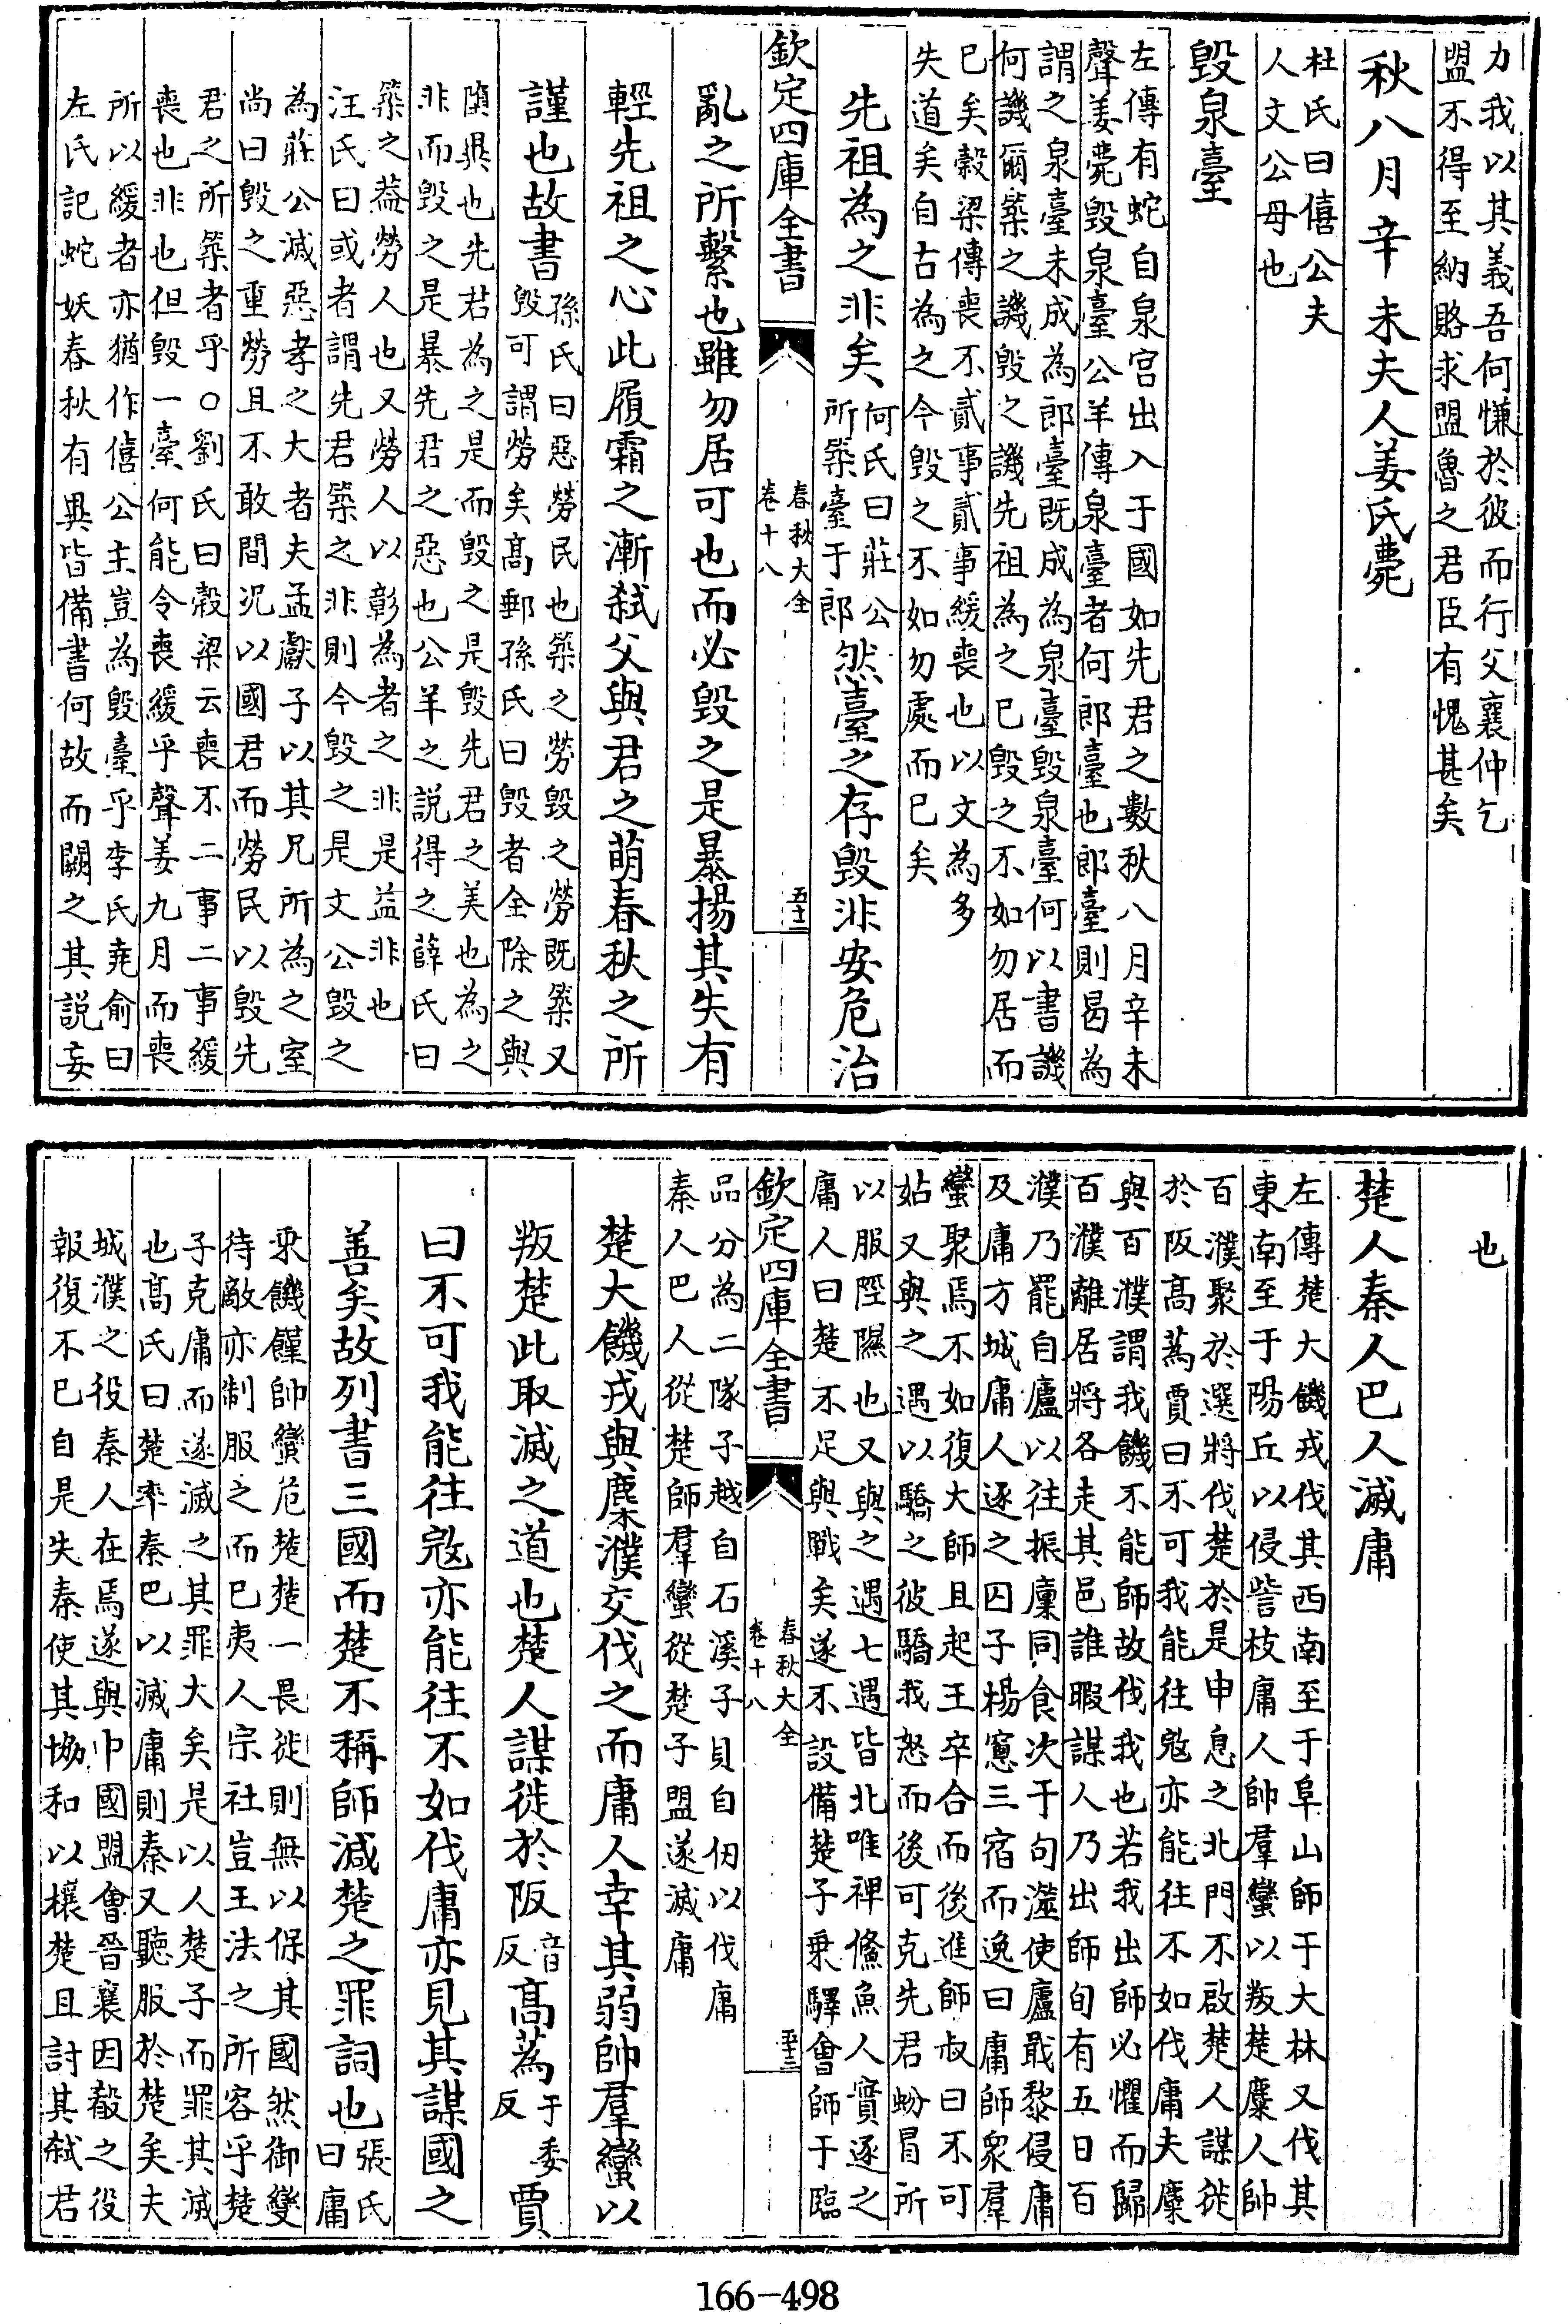 力我以其義吾何慊於彼而行父襄仲乞
盟不得至納賂求盟魯之君臣有愧甚矣
秋八月辛未夫人姜氏薨
杜氏曰僖公夫
人文公母也
毁泉臺
左傳有蛇自泉宫出入于國如先君之數秋八月辛未
聲姜薨毁泉臺公羊傳泉臺者何郎臺也郎臺則曷為
謂之泉臺未成為郎臺既成為泉臺毁泉臺何以書譏
何譏爾築之譏毁之譏先祖為之已毁之不如勿居而
已矣榖梁傳喪不貳事貳事緩喪也以文為多
失道矣自古為之今毁之不如勿處而已矣
先祖為之非矣何氏曰莊公所築臺于郎然臺之存毁非安危治
欽定四庫全書
春秋大全
卷十八
五十二
亂之所繫也雖勿居可也而必毁之是暴揚其失有
輕先祖之心此履霜之漸弑父與君之萌春秋之所
謹也故書孫氏曰惡勞民也築之勞毁之勞既築又
毁可謂勞矣髙郵孫氏曰毁者全除之與
墮異也先君為之是而毁之是毁先君之美也為之
非而毁之是暴先君之惡也公羊之説得之薛氏曰
築之葢勞人也又勞人以彰為者之非是益非也
汪氏曰或者謂先君築之非則今毁之是文公毁之
為莊公滅惡孝之大者夫孟獻子以其兄所為之室
尚曰毁之重勞且不敢間况以國君而勞民以毁先
君之所築者乎○劉氏曰榖梁云喪不二事二事緩
喪也非也但毁一臺何能令喪緩乎聲姜九月而喪
所以緩者亦猶作僖公主豈為毁臺乎李氏堯俞曰
左氏記蛇妖春秋有異皆備書何故而闕之其説妄
也
楚人秦人巴人滅庸
左傳楚大饑戎伐其西南至于阜山師于大林又伐其
東南至于陽丘以侵訾枝庸人帥羣蠻以叛楚麇人帥
百濮聚於選將伐楚於是申息之北門不啟楚人謀徙
於阪髙蒍賈曰不可我能往宼亦能往不如伐庸夫麇
與百濮謂我饑不能師故伐我也若我出師必懼而歸
百濮離居將各走其邑誰暇謀人乃出師旬有五日百
濮乃罷自廬以往振廩同食次于句澨使廬戢黎侵庸
及庸方城庸人逐之囚子揚窻三宿而逸曰庸師衆羣
蠻聚焉不如復大師且起王卒合而後進師叔曰不可
姑又與之遇以驕之彼驕我怒而後可克先君蚡冒所
以服陘隰也又與之遇七遇皆北唯裨鯈魚人實逐之
庸人曰楚不足與戰矣遂不設備楚子乗驛會師于臨
欽定四庫全書
春秋大全
卷十八
五十三
品分為二隊子越自石溪子貝自仞以伐庸
秦人巴人從楚師羣蠻從楚子盟遂滅庸
楚大饑戎與麇濮交伐之而庸人幸其弱帥羣蠻以
叛楚此取滅之道也楚人謀徙於阪音反髙蒍于委反賈
曰不可我能往宼亦能往不如伐庸亦見其謀國之
善矣故列書三國而楚不稱師減楚之罪詞也張氏
曰庸
乗饑饉帥蠻危楚楚一畏徙則無以保其國然御變
待敵亦制服之而已夷人宗社豈王法之所容乎楚
子克庸而遂滅之其罪大矣是以人楚子而罪其滅
也髙氏曰楚率秦巴以滅庸則秦又聽服於楚矣夫
城濮之役秦人在焉遂與中國盟會晉襄因殽之役
報復不已自是失秦使其恊和以攘楚且討其弑君
166-498